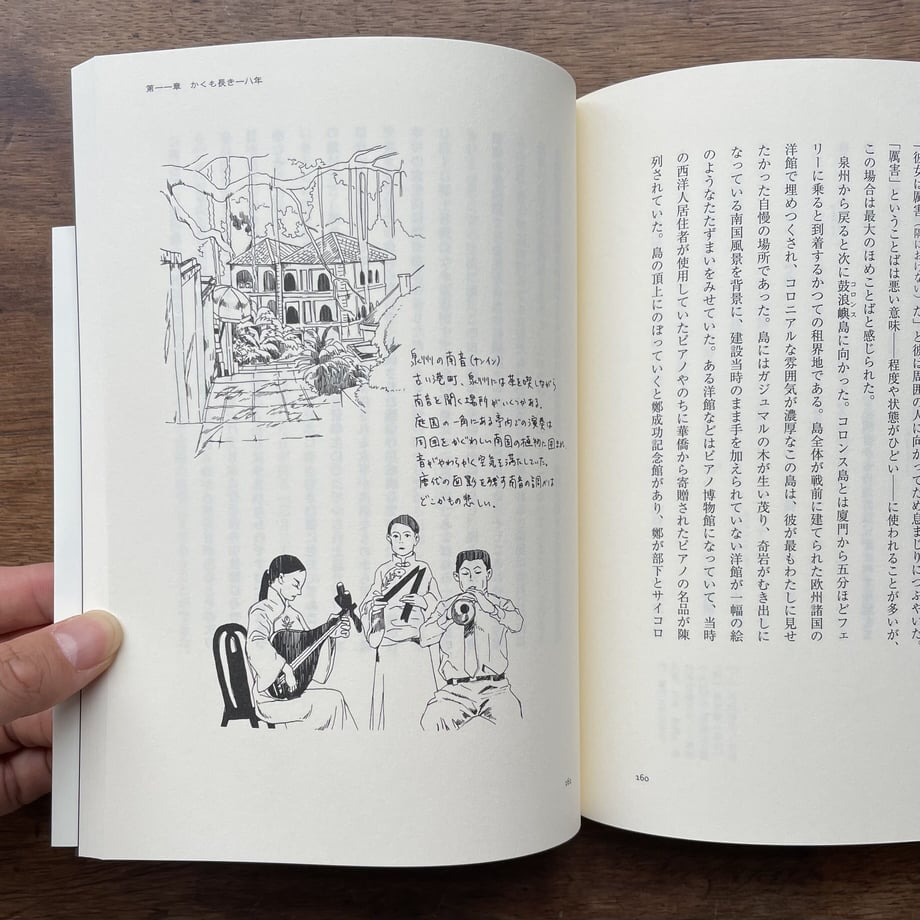 「彼女は厲害
だ」と彼は周囲の
にかつてため息まじりにつぶやいた。
「厲害」ということばは悪い意味——程度や状態がひどい——に使われることが多いが、
この場合は最大のほめことばと感じられた。
コロンス
泉州から戻ると次に鼓浪嶼島に向かった。コロンス島とは廈門から五分ほどフェ
リーに乗ると到着するかつての租界地である。島全体が戦前に建てられた欧州諸国の
洋館で埋めつくされ、コロニアルな雰囲気が濃厚なこの島は、彼が最もわたしに見せ
たかった自慢の場所であった。島にはガジュマルの木が生い茂り、奇岩がむき出しに
なっている南国風景を背景に、建設当時のまま手を加えられていない洋館が一幅の絵
のようなたたずまいをみせていた。ある洋館などはピアノ博物館になっていて、当時
の西洋人居住者が使用していたピアノやのちに華僑から寄贈されたピアノの名品が陳
列されていた。島の頂上にのぼっていくと鄭成功記念館があり、鄭が部下とサイコロ
160
第一一章 かくも長き一八年
泉州の南音(ナンイン)
古い港町、泉州には茶を喫しながら
南音を聞く場所がいくつかある。
庭園の一角にある亭内での演奏は
周囲をかぐわしい南国の植物に囲まれ
音がやわらかく空気を満たしていた。
唐代の面影を残す南音の調べは
どこかもの悲しい。
161